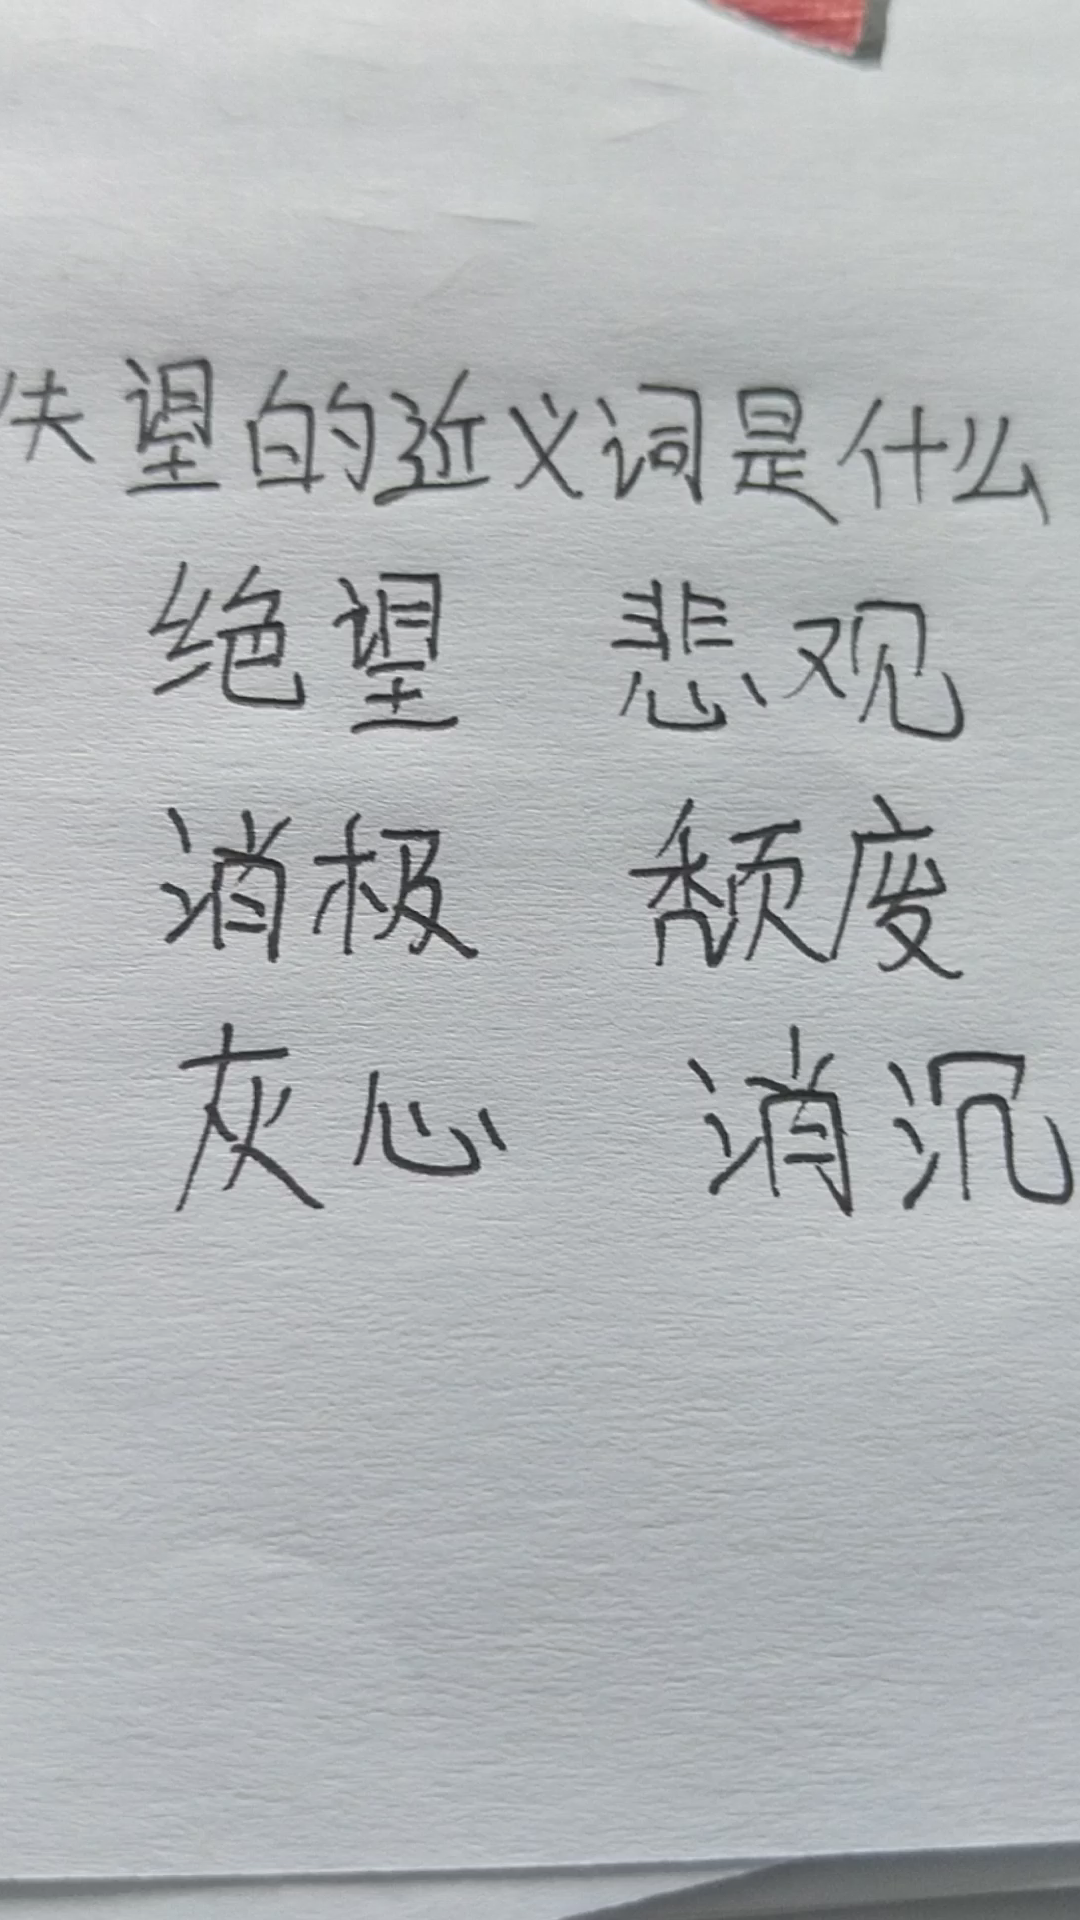 失望的近义词是什么
绝望 悲观
消极 颓废
灰心 消沉